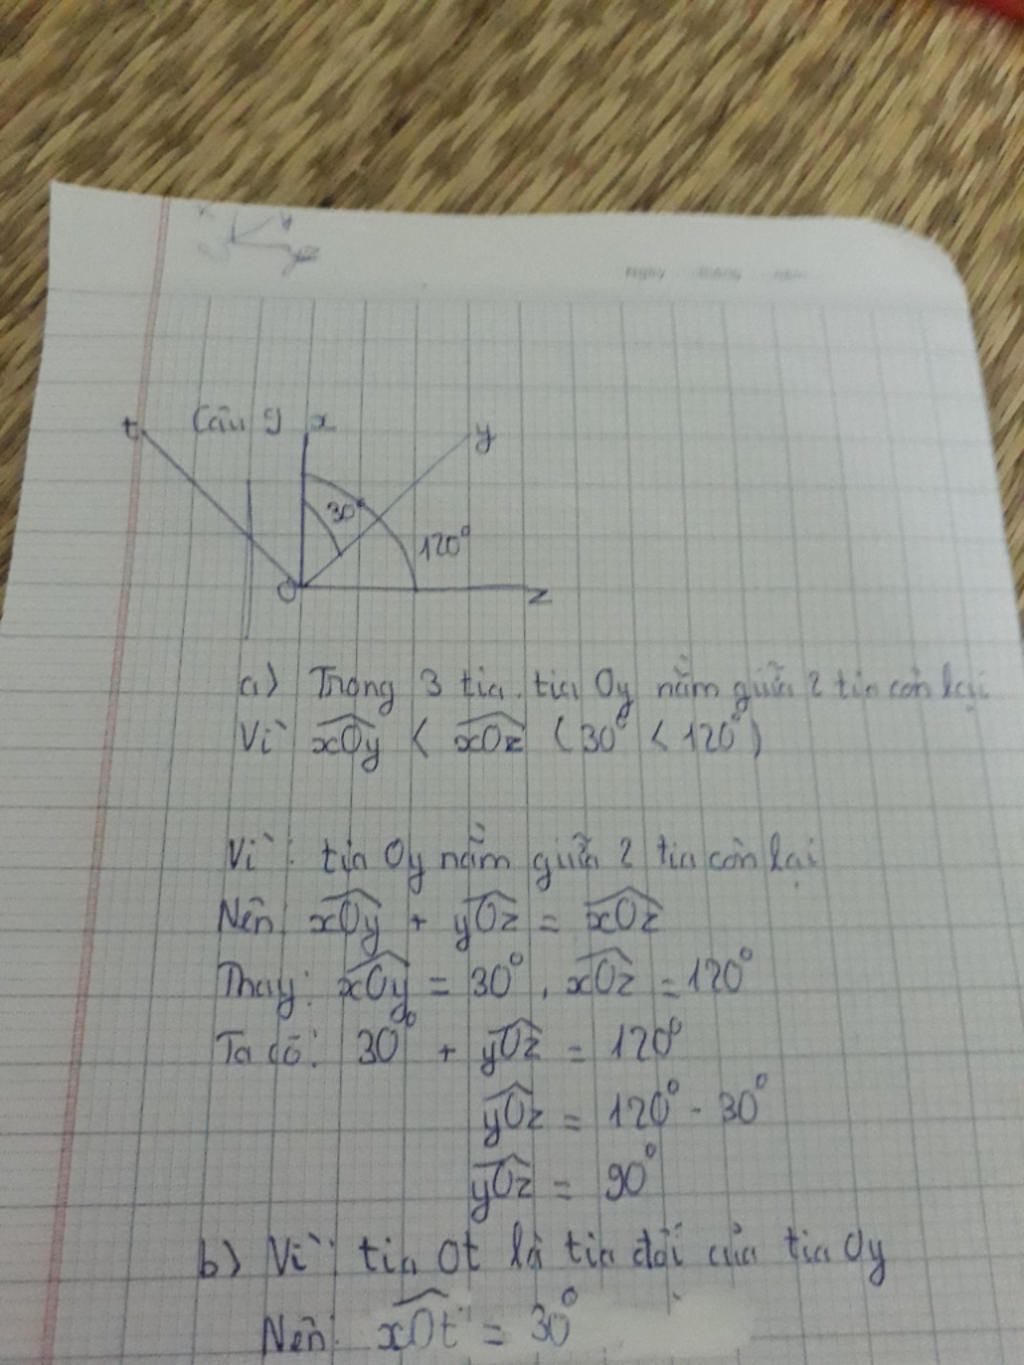 Ngày tháng năm
Câu 9
t x y
30°
120°
O z
a) Trong 3 tia, tia Oy nằm giữa 2 tia còn lại
Vì xOy < xOz (30° < 120°)
Vì: tia Oy nằm giữa 2 tia còn lại
Nên: xOy + yOz = xOz
Thay: xOy = 30°, xOz = 120°
Ta có: 30° + yOz = 120°
yOz = 120° - 30°
yOz = 90°
b) Vì: tia Ot là tia đối của tia Oy
Nên: xOt = 30°